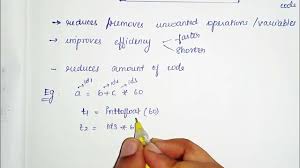 code
→ reduces/removes unwanted operations/variables
→ improves efficiency → faster
→ shorter
→ reduces amount of code
Eg: id1 id2 id3
a = b + c * 60
t1 = inttofloat (60)
t2 = id3 * 6